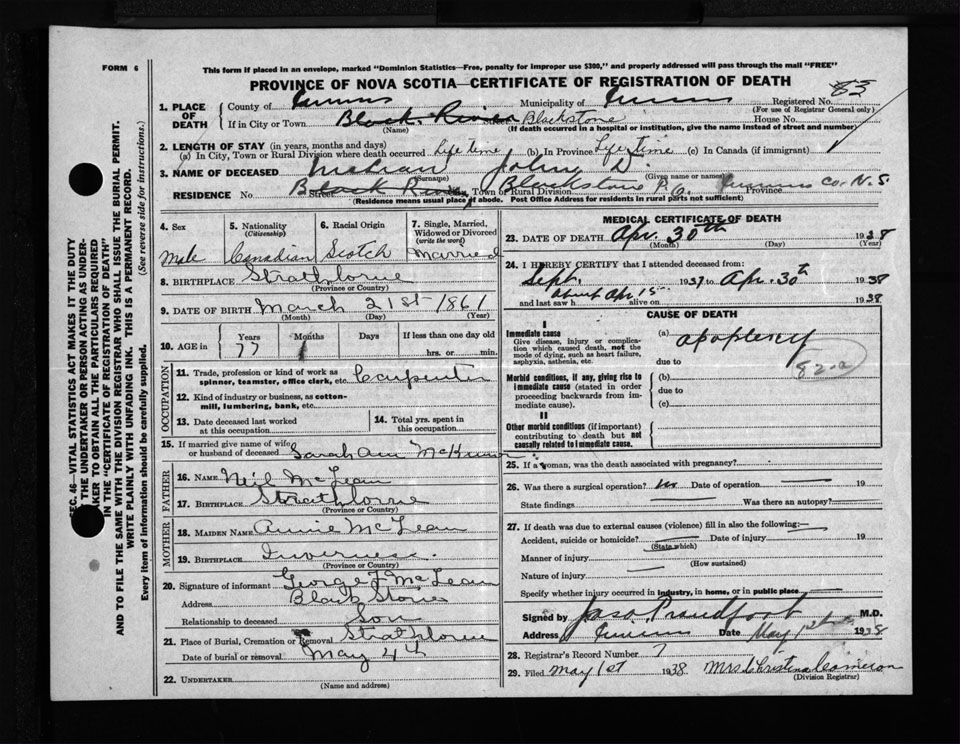 FORM 6
This form if placed in an envelope, marked "Dominion Statistics—Free, penalty for improper use $300," and properly addressed will pass through the mail "FREE"
PROVINCE OF NOVA SCOTIA—CERTIFICATE OF REGISTRATION OF DEATH
1. PLACE OF DEATH County of Municipality of Registered No. 83
(For use of Registrar General only)
If in City or Town Black River Street Blackstone House No.
(Name) (If death occurred in a hospital or institution, give the name instead of street and number)
2. LENGTH OF STAY (in years, months and days)
(a) In City, Town or Rural Division where death occurred Life time (b) In Province Life time (c) In Canada (if immigrant)
3. NAME OF DECEASED John D.
(Surname) (Given name or names)
RESIDENCE Black River Street Town or Rural Division Blackstone P.O. Province Co. N.S.
(Residence means usual place of abode. Post Office Address for residents in rural parts not sufficient)
4. Sex Male
5. Nationality (Citizenship) Canadian
6. Racial Origin Scotch
7. Single, Married, Widowed or Divorced (write the word) Married
8. BIRTHPLACE Strathlorne
(Province or Country)
9. DATE OF BIRTH March 21st 1861
(Month) (Day) (Year)
10. AGE in Years 77 Months 1 Days If less than one day old hrs. or min.
OCCUPATION
11. Trade, profession or kind of work as spinner, teamster, office clerk, etc. Carpenter
12. Kind of industry or business, as cotton-mill, lumbering, bank, etc.
13. Date deceased last worked at this occupation
14. Total yrs. spent in this occupation
15. If married give name of wife or husband of deceased Sarah Ann
FATHER
16. NAME Neil McLean
17. BIRTHPLACE Strathlorne
(Province or Country)
MOTHER
18. MAIDEN NAME Annie McLean
19. BIRTHPLACE Inverness
(Province or Country)
20. Signature of informant George F McLean
Address Black Stone
Relationship to deceased Son
21. Place of Burial, Cremation or Removal Strathlorne
Date of burial or removal May 4th
22. UNDERTAKER
(Name and address)
MEDICAL CERTIFICATE OF DEATH
23. DATE OF DEATH Apr. 30th 1938
(Month) (Day) (Year)
24. I HEREBY CERTIFY that I attended deceased from:
Sept. 1937 to Apr. 30th 1938
and last saw h alive on about Apr 15 1938
CAUSE OF DEATH
I
Immediate cause
Give disease, injury or complication which caused death, not the mode of dying, such as heart failure, asphyxia, asthenia, etc.
(a) apoplexy
due to
82a
Morbid conditions, if any, giving rise to immediate cause (stated in order proceeding backwards from immediate cause).
(b)
due to
(c)
II
Other morbid conditions (if important) contributing to death but not causally related to immediate cause.
25. If a woman, was the death associated with pregnancy?
26. Was there a surgical operation? no Date of operation 19
State findings Was there an autopsy?
27. If death was due to external causes (violence) fill in also the following:
Accident, suicide or homicide? Date of injury 19
(State which)
Manner of injury
(How sustained)
Nature of injury
Specify whether injury occurred in industry, in home, or in public place
Signed by Jas. Proudfoot M.D.
Address Date May 1938
28. Registrar's Record Number 7
29. Filed May 1st 1938 Mrs Christena Cameron
(Division Registrar)
SEC. 46—VITAL STATISTICS ACT MAKES IT THE DUTY
THE UNDERTAKER OR PERSON ACTING AS UNDER-
KER TO OBTAIN ALL THE PARTICULARS REQUIRED
IN THE "CERTIFICATE OF REGISTRATION OF DEATH"
AND TO FILE THE SAME WITH THE DIVISION REGISTRAR WHO SHALL ISSUE THE BURIAL PERMIT.
WRITE PLAINLY WITH UNFADING INK. THIS IS A PERMANENT RECORD.
Every item of information should be carefully supplied. (See reverse side for instructions.)